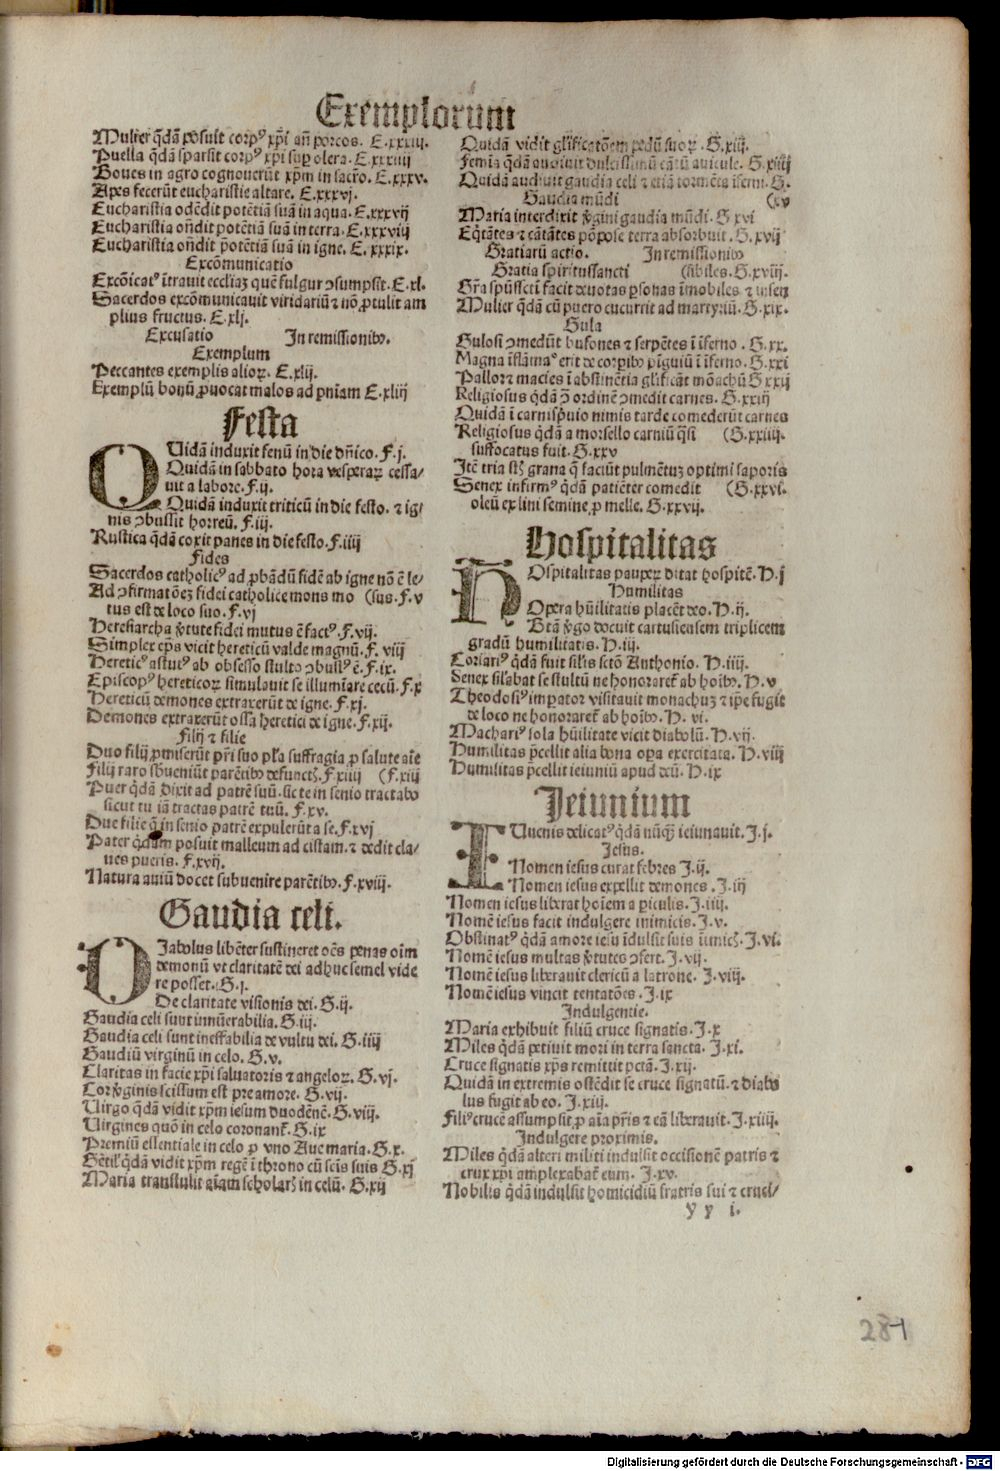 Exemplorum
Mulier q̄dā posuit corpꝰ xp̄i añ porcos. E.xxxiij.
Puella q̄dā sparsit corpꝰ xp̄i suꝑ olera. E.xxxiiij
Boues in agro cognouerūt xp̄m in sacr̄o. E.xxxv.
Apes fecerūt eucharistie altare. E.xxxvj.
Eucharistia oñdit potētiā suā in aqua. E.xxxvij
Eucharistia oñdit potētiā suā in terra. E.xxxviij
Eucharistia oñdit potētiā suā in igne. E.xxxix.
Excōmunicatio
Excōicatꝰ ītrauit eccliaꝫ quē fulgur ↄsumpsit. E.xl.
Sacerdos excōmunicauit viridariū ⁊ nō ꝓtulit am
plius fructus. E.xlj.
Excusatio In remissioniƀꝰ.
Exemplum
Peccantes exemplis alioꝝ. E.xlij.
Exemplū bonū ꝓuocat malos ad pn̄iam E.xliij
Festa
QUidā induxit fenū in die dn̄ico. F.j.
Quidā in sabbato hora vesperaꝝ cessa/
uit a labore. F.ij.
Quidā induxit triticū in die festo. ⁊ ig/
nis ↄbussit horreū. F.iij.
Rustica q̄dā coxit panes in die festo. F.iiij
Fides
Sacerdos catholicꝰ ad ꝓbādū fidē ab igne nō ē le/
Ad ↄfirmatōeꝫ fidei catholice mons mo (sus. F.v
tus est de loco suo. F.vj
Heresiarcha v̄tute fidei mutus ē factꝰ. F.vij.
Simplex ep̄s vicit hereticū valde magnū. F.viij
Hereticꝰ astutꝰ ab obsesso stulto ↄuict̄ꝰ ē. F.ix.
Episcopꝰ hereticoꝝ simulauit se illumīare cecū. F.x
Hereticū demones extraxerūt de igne. F.xj.
Demones extraxerūt ossa heretici de igne. F.xij.
Filij ⁊ filie
Duo filij ꝓmiserūt pr̄i suo pl̄a suffragia ꝓ salute aīe
Filij raro sb̄ueniūt parētiƀꝰ defunctꝭ. F.xiiij (F.xiij
Puer q̄dā dixit ad patrē suū. sic te in senio tractabo
sicut tu iā tractas patrē tuū. F.xv.
Due filie q̄ in senio patrē expulerūt a se. F.xvj
Pater q̄dam posuit malleum ad cistam. ⁊ dedit cla/
ues pueris. F.xvij.
Natura auiū docet subuenire parētiƀꝰ. F.xviij.
Gaudia celi.
DIabolus libēter sustineret oēs penas oīm
demonū vt claritatē dei adhuc semel vide
re posset. G.j.
De claritate visionis dei. G.ij.
Gaudia celi sunt innūerabilia. G.iij.
Gaudia celi sunt ineffabilia de vultu dei. G.iiij
Gaudiū virginū in celo. G.v.
Claritas in facie xp̄i saluatoris ⁊ angeloꝝ. G.vj.
Cor v̄ginis scissum est pre amore. G.vij.
Virgo q̄dā vidit xp̄m iesum duodēnē. G.viij.
Virgines quō in celo coronant̄. G.ix
Premiū essentiale in celo ꝓ vno Aue maria. G.x.
Gētil' q̄dā vidit xp̄m regē ī throno cū scīs suis G.xj
Maria transtulit aīam scholarꝭ in celū. G.xij
Quidā vidit glīficatōem pedū suoꝝ. G.xiij.
Femīa q̄dā audiuit dulcissimū cātū auicule. G.xiiij
Quidā audiuit gaudia celi ⁊ etiā tormēta īferni. G.
Gaudia mūdi (xv
Maria interdixit v̄gini gaudia mūdi. G.xvi
Eq̄tātes ⁊ cātātes pōpose terra absorbuit. G.xvij
Gratiarū actio. In remissioniƀꝰ
Gratia spiritussancti (sibiles. G.xviij.
Gr̄a sp̄ūssctī facit deuotas ꝑsonas īmobiles ⁊ īsen
Mulier q̄dā cū puero cucurrit ad martyriū. G.xix.
Gula
Gulosi ↄmedūt bufones ⁊ serpētes ī īferno. G.xx.
Magna īflāmaꝰ erit de corꝑibꝰ pīguiū ī īferno. G.xxi
Pallor ⁊ macies ī abstinētia glīficāt mōachū G.xxij
Religiosus q̄dā ꝯ ordinē ↄmedit carnes. G.xxiij
Quidā ī carnispriuio nimis tarde comederūt carnes
Religiosus q̄dā a morsello carniū q̄si (G.xxiiij.
suffocatus fuit. G.xxv
Itē tria sꝭ grana q̄ faciūt pulmētuꝫ optimi saporis
Senex infirmꝰ q̄dā patiēter comedit (G.xxvi.
oleū ex lini semine ꝓ melle. G.xxvij.
Hospitalitas
HOspitalitas pauꝑeꝝ ditat hospitē. H.j
Humilitas
Opera hūilitatis placēt deo. H.ij.
Btā v̄go docuit cartusiensem triplicem
gradū humilitatis. H.iij.
Coriariꝰ q̄dā fuit sil̄is sctō Anthonio. H.iiij.
Senex sil̄abat se stultū ne honoraret̄ ab hoībꝰ. H.v
Theodosiꝰ imꝑator visitauit monachuꝫ ⁊ ip̄e fugit
de loco ne honoraret̄ ab hoībꝰ. H.vi.
Machariꝰ sola hūilitate vicit diabolū. H.vij.
Humilitas p̄cellit alia bona oꝑa exercitata. H.viij
Humilitas p̄cellit ieiuniū apud deū. H.ix
Jeiunium
IUuenis delicatꝰ q̄dā nūq̄ꝫ ieiunauit. J.j.
Jesus.
Nomen iesus curat febres J.ij.
Nomen iesus expellit demones. J.iij
Nomen iesus liberat hoīem a ꝑiculis. J.iiij.
Nomē iesus facit indulgere inimicis. J.v.
Obstinatꝰ q̄dā amore iesu īdulsit suis inīmicꝭ. J.vi.
Nomē iesus multas v̄tutes ↄfert. J.vij.
Nomē iesus liberauit clericū a latrone. J.viij.
Nomē iesus vincit tentatōes. J.ix
Indulgentie.
Maria exhibuit filiū cruce signatis. J.x
Miles q̄dā petiuit mori in terra sancta. J.xi.
Cruce signatis xp̄s remittit pctā. J.xij.
Quidā in extremis ostēdit se cruce signatū. ⁊ diabo
lus fugit ab eo. J.xiij.
Filiꝰ crucē assumpsit ꝓ aīa pr̄is ⁊ eā liberauit. J.xiiij.
Indulgere proximis.
Miles q̄dā alteri militi indulsit occisionē patris ⁊
crux xp̄i amplexabat̄ eum. J.xv.
Nobilis q̄dā indulsit homicidiū fratris sui ⁊ cruci/
y y i.
281
Digitalisierung gefördert durch die Deutsche Forschungsgemeinschaft - DFG